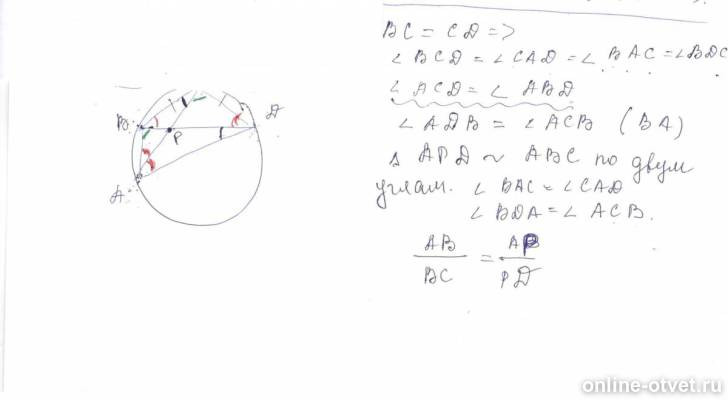 BC = CD =>
∠ BCD = ∠ CAD = ∠ BAC = ∠BDC
∠ ACD = ∠ ABD
∠ ADB = ∠ ACB (BA)
Δ APD ~ ABC по двум
углам. ∠ BAC = ∠CAD
∠ BDA = ∠ ACB.
AB/BC = AP/PD
B
D
P
A
online-otvet.ru